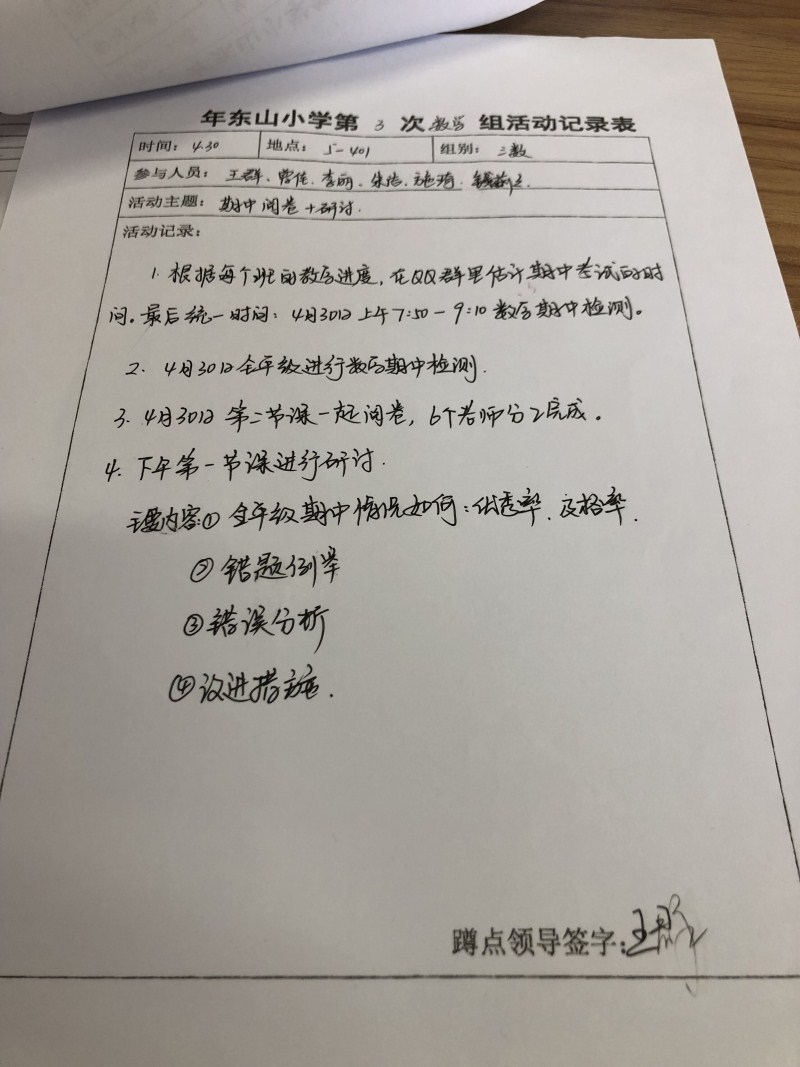 年东山小学第 3 次 数学 组活动记录表
时间: 4.30 地点: 5-401 组别: 三数
参与人员: 王群、曾佳、李丽、朱洁、施琦、
活动主题: 期中阅卷+研讨.
活动记录:
1. 根据每个班的教学进度,在QQ群里估计期中考试的时
间。最后统一时间: 4月30日上午7:50-9:10数学期中检测。
2. 4月30日全年级进行数学期中检测.
3. 4月30日第二节课一起阅卷, 6个老师分工完成。
4. 下午第一节课进行研讨.
主要内容:① 全年级期中情况如何:优秀率、及格率.
② 错题例举
③ 错误分析
④ 改进措施.
蹲点领导签字: 王群